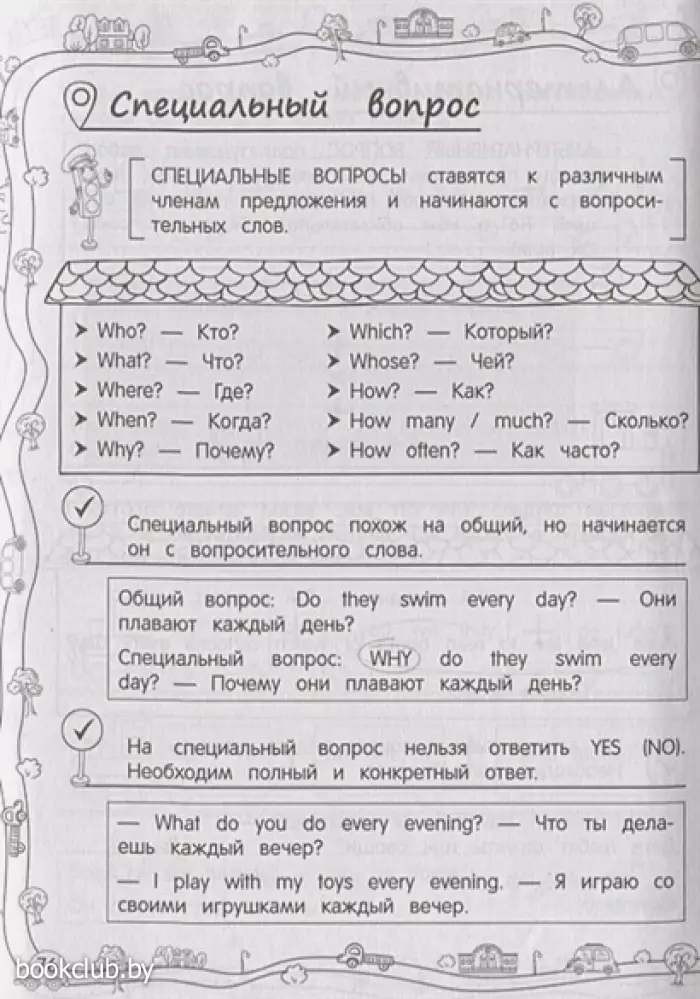 Специальный вопрос
СПЕЦИАЛЬНЫЕ ВОПРОСЫ ставятся к различным
членам предложения и начинаются с вопроси-
тельных слов.
➤ Who? — Кто?
➤ What? — Что?
➤ Where? — Где?
➤ When? — Когда?
➤ Why? — Почему?
➤ Which? — Который?
➤ Whose? — Чей?
➤ How? — Как?
➤ How many / much? — Сколько?
➤ How often? — Как часто?
Специальный вопрос похож на общий, но начинается
он с вопросительного слова.
Общий вопрос: Do they swim every day? — Они
плавают каждый день?
Специальный вопрос: WHY do they swim every
day? — Почему они плавают каждый день?
На специальный вопрос нельзя ответить YES (NO).
Необходим полный и конкретный ответ.
— What do you do every evening? — Что ты дела-
ешь каждый вечер?
— I play with my toys every evening. — Я играю со
своими игрушками каждый вечер.
bookclub.by